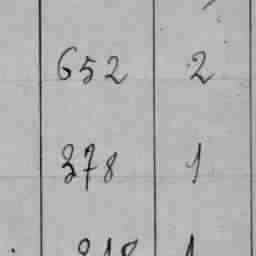 652 2
378 1